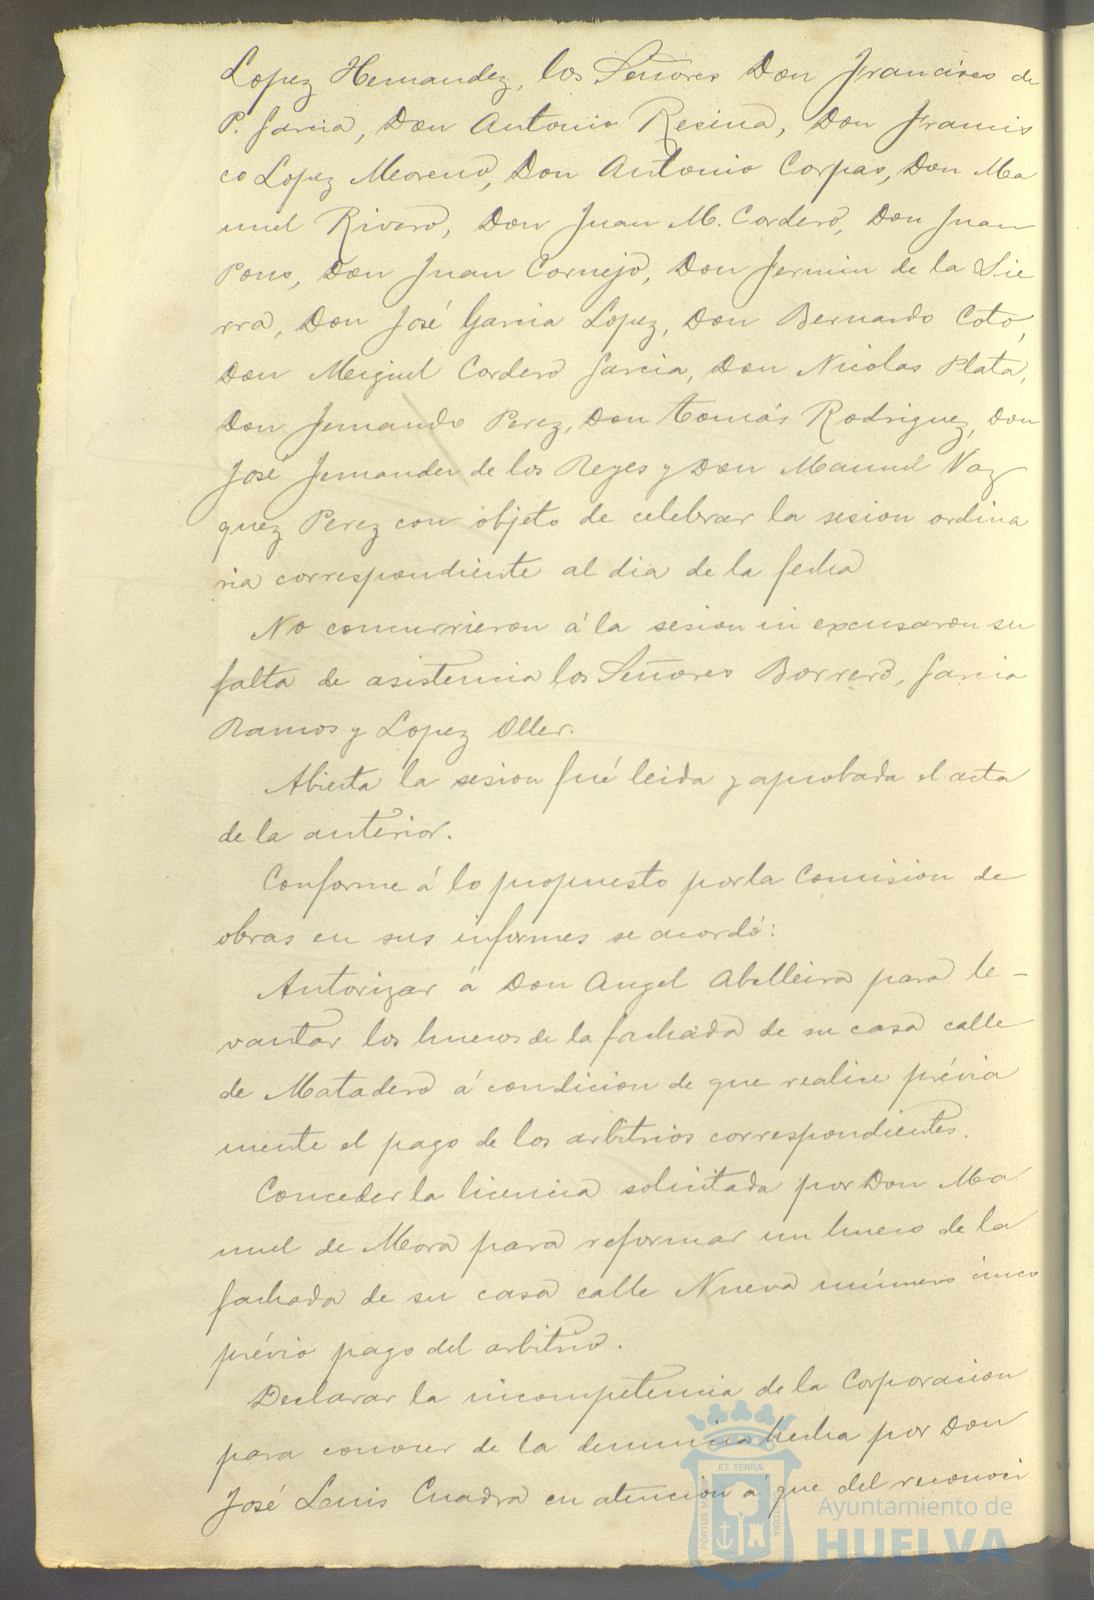 Lopez Hernandez, los Señores Don Francisco de
P. Garcia, Don Antonio Resina, Don Francis
co Lopez Moreno, Don Antonio Corpas, Don Ma
nuel Rivero, Don Juan M. Cordero, Don Juan
Pons, Don Juan Cornejo, Don Fermin de la Sie
rra, Don José Garcia Lopez, Don Bernardo Coto,
Don Miguel Cordero Garcia, Don Nicolas Plata,
Don Fernando Perez, Don Tomás Rodriguez, Don
José Fernandez de los Reyes y Don Manuel Vaz
quez Perez con objeto de celebrar la sesion ordina
ria correspondiente al dia de la fecha
No concurrieron á la sesion ni excusaron su
falta de asistencia los Señores Borrero, Garcia
Ramos y Lopez Oller.
Abierta la sesion fué leida y aprobada el acta
de la anterior.
Conforme á lo propuesto por la Comision de
obras en sus informes se acordó:
Autorizar á Don Angel Abelleira para le-
vantar los huecos de la fachada de su casa calle
de Matadero á condicion de que realice prévia
mente el pago de los arbitrios correspondientes.
Conceder la licencia solicitada por Don Ma
nuel de Mora para reformar un hueco de la
fachada de su casa calle Nueva número
prévio pago del arbitrio.
Declarar la incompetencia de la Corporacion
para conocer de la denuncia hecha por Don
José Luis Cuadra en atencion á que del reconoci
ET TERRÆ
PORTUS MARIS
CUSTODIA
Ayuntamiento de
HUELVA